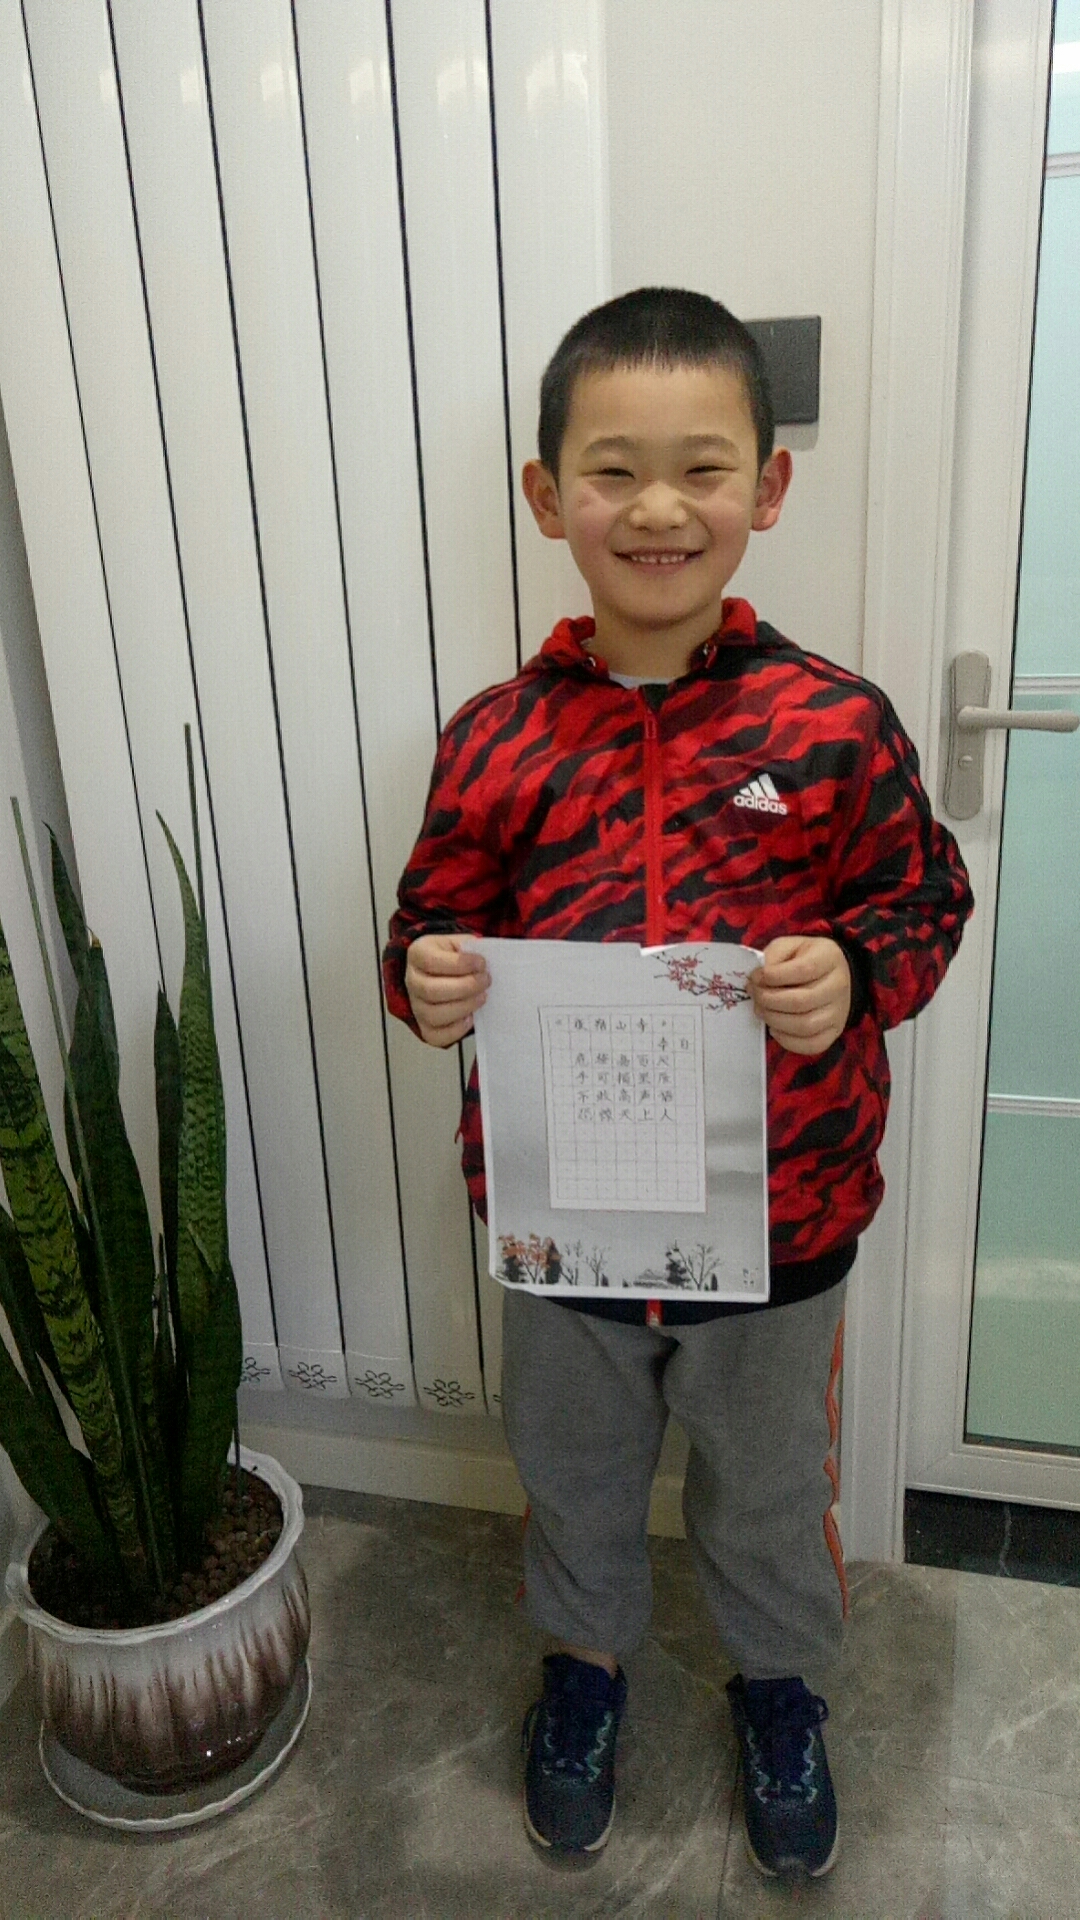 adidas
《夜宿山寺》
李白
危楼高百尺
手可摘星辰
不敢高声语
恐惊天上人